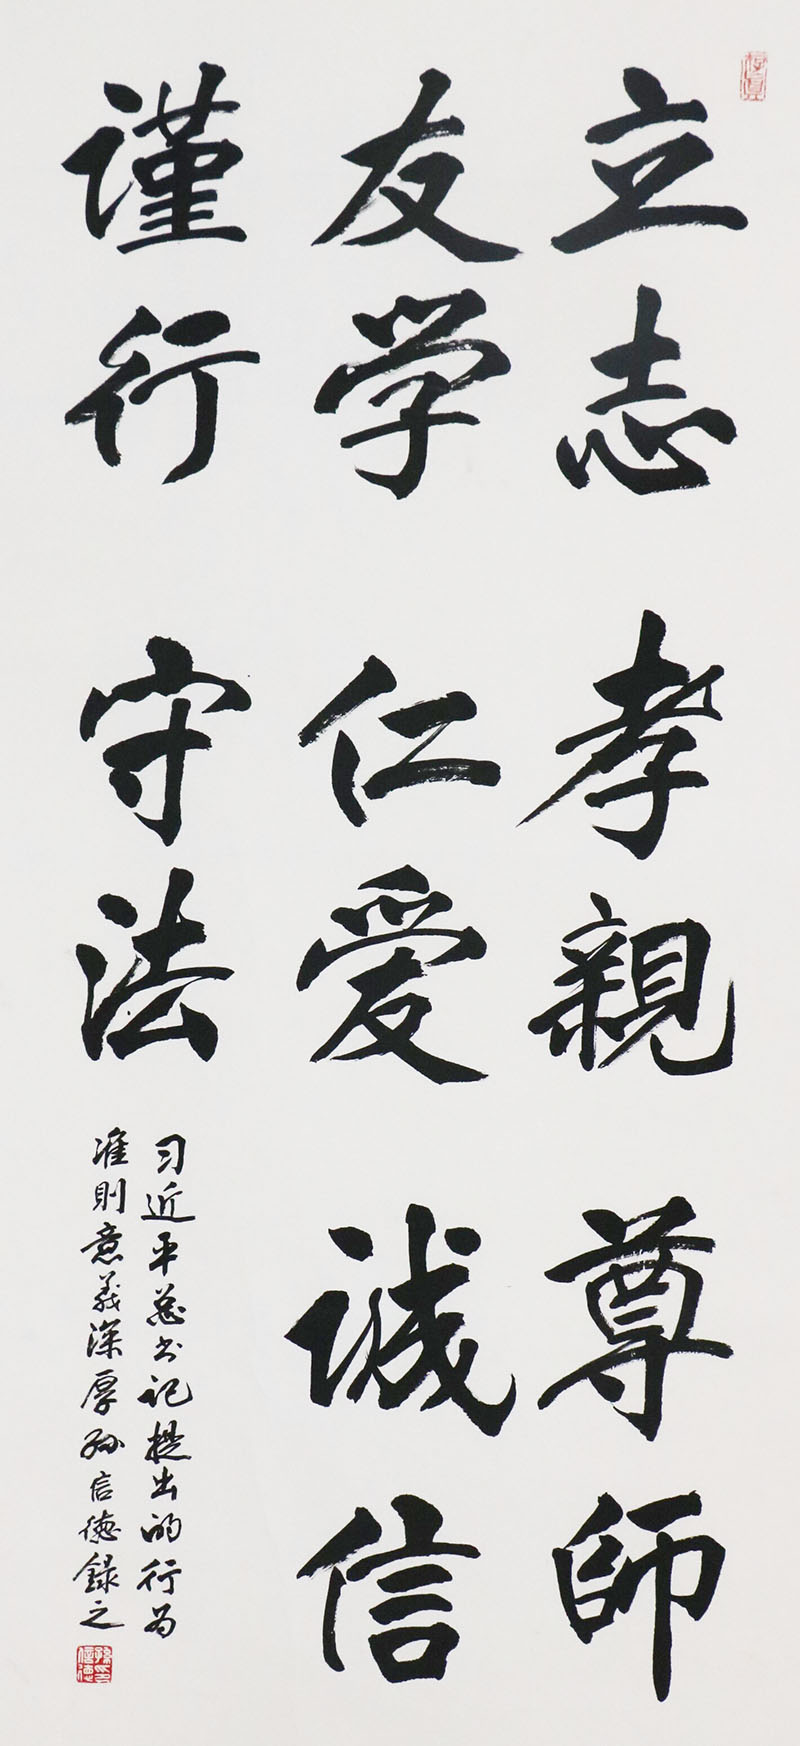 立志 孝親 尊師
友学 仁爱 诚信
谨行 守法
习近平总书记提出的行为
准則意義深厚孙信德錄之